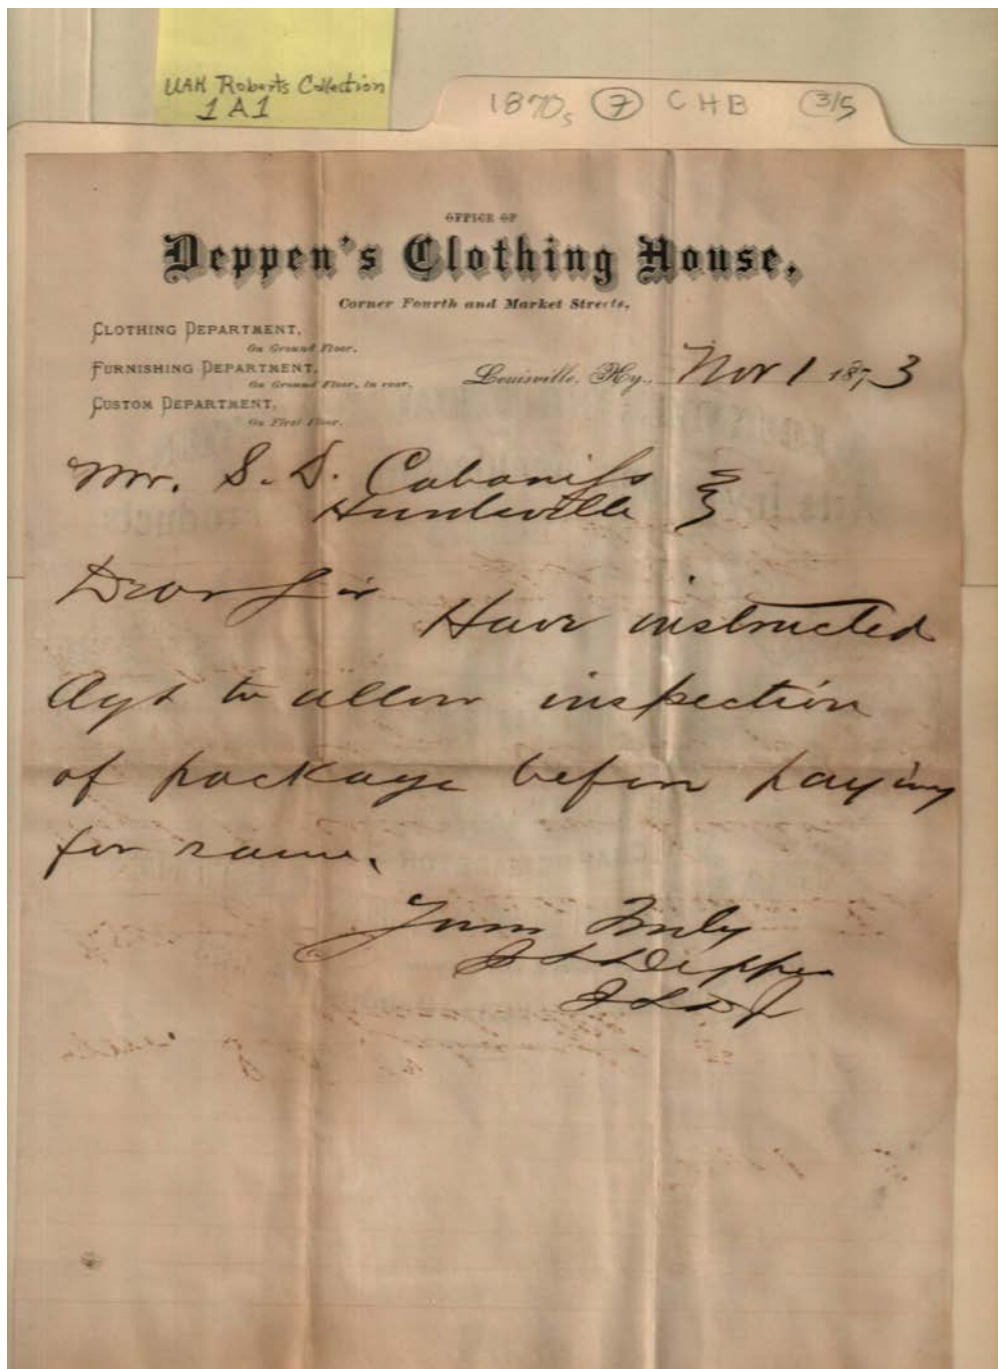 UAH Roberts Collection
1A1
1870s 7 CHB 3/5
OFFICE OF
Deppen's Clothing House,
Corner Fourth and Market Streets.
CLOTHING DEPARTMENT,
On Ground Floor.
FURNISHING DEPARTMENT,
On Ground Floor, in rear.
CUSTOM DEPARTMENT,
On First Floor.
Louisville, Ky., Nov 1 1873
Mr. S. D. Cabaniss
Huntsville
Dear Sir
Have instructed
Agt to allow inspection
of package before paying
for same.
Yours Truly
Deppen